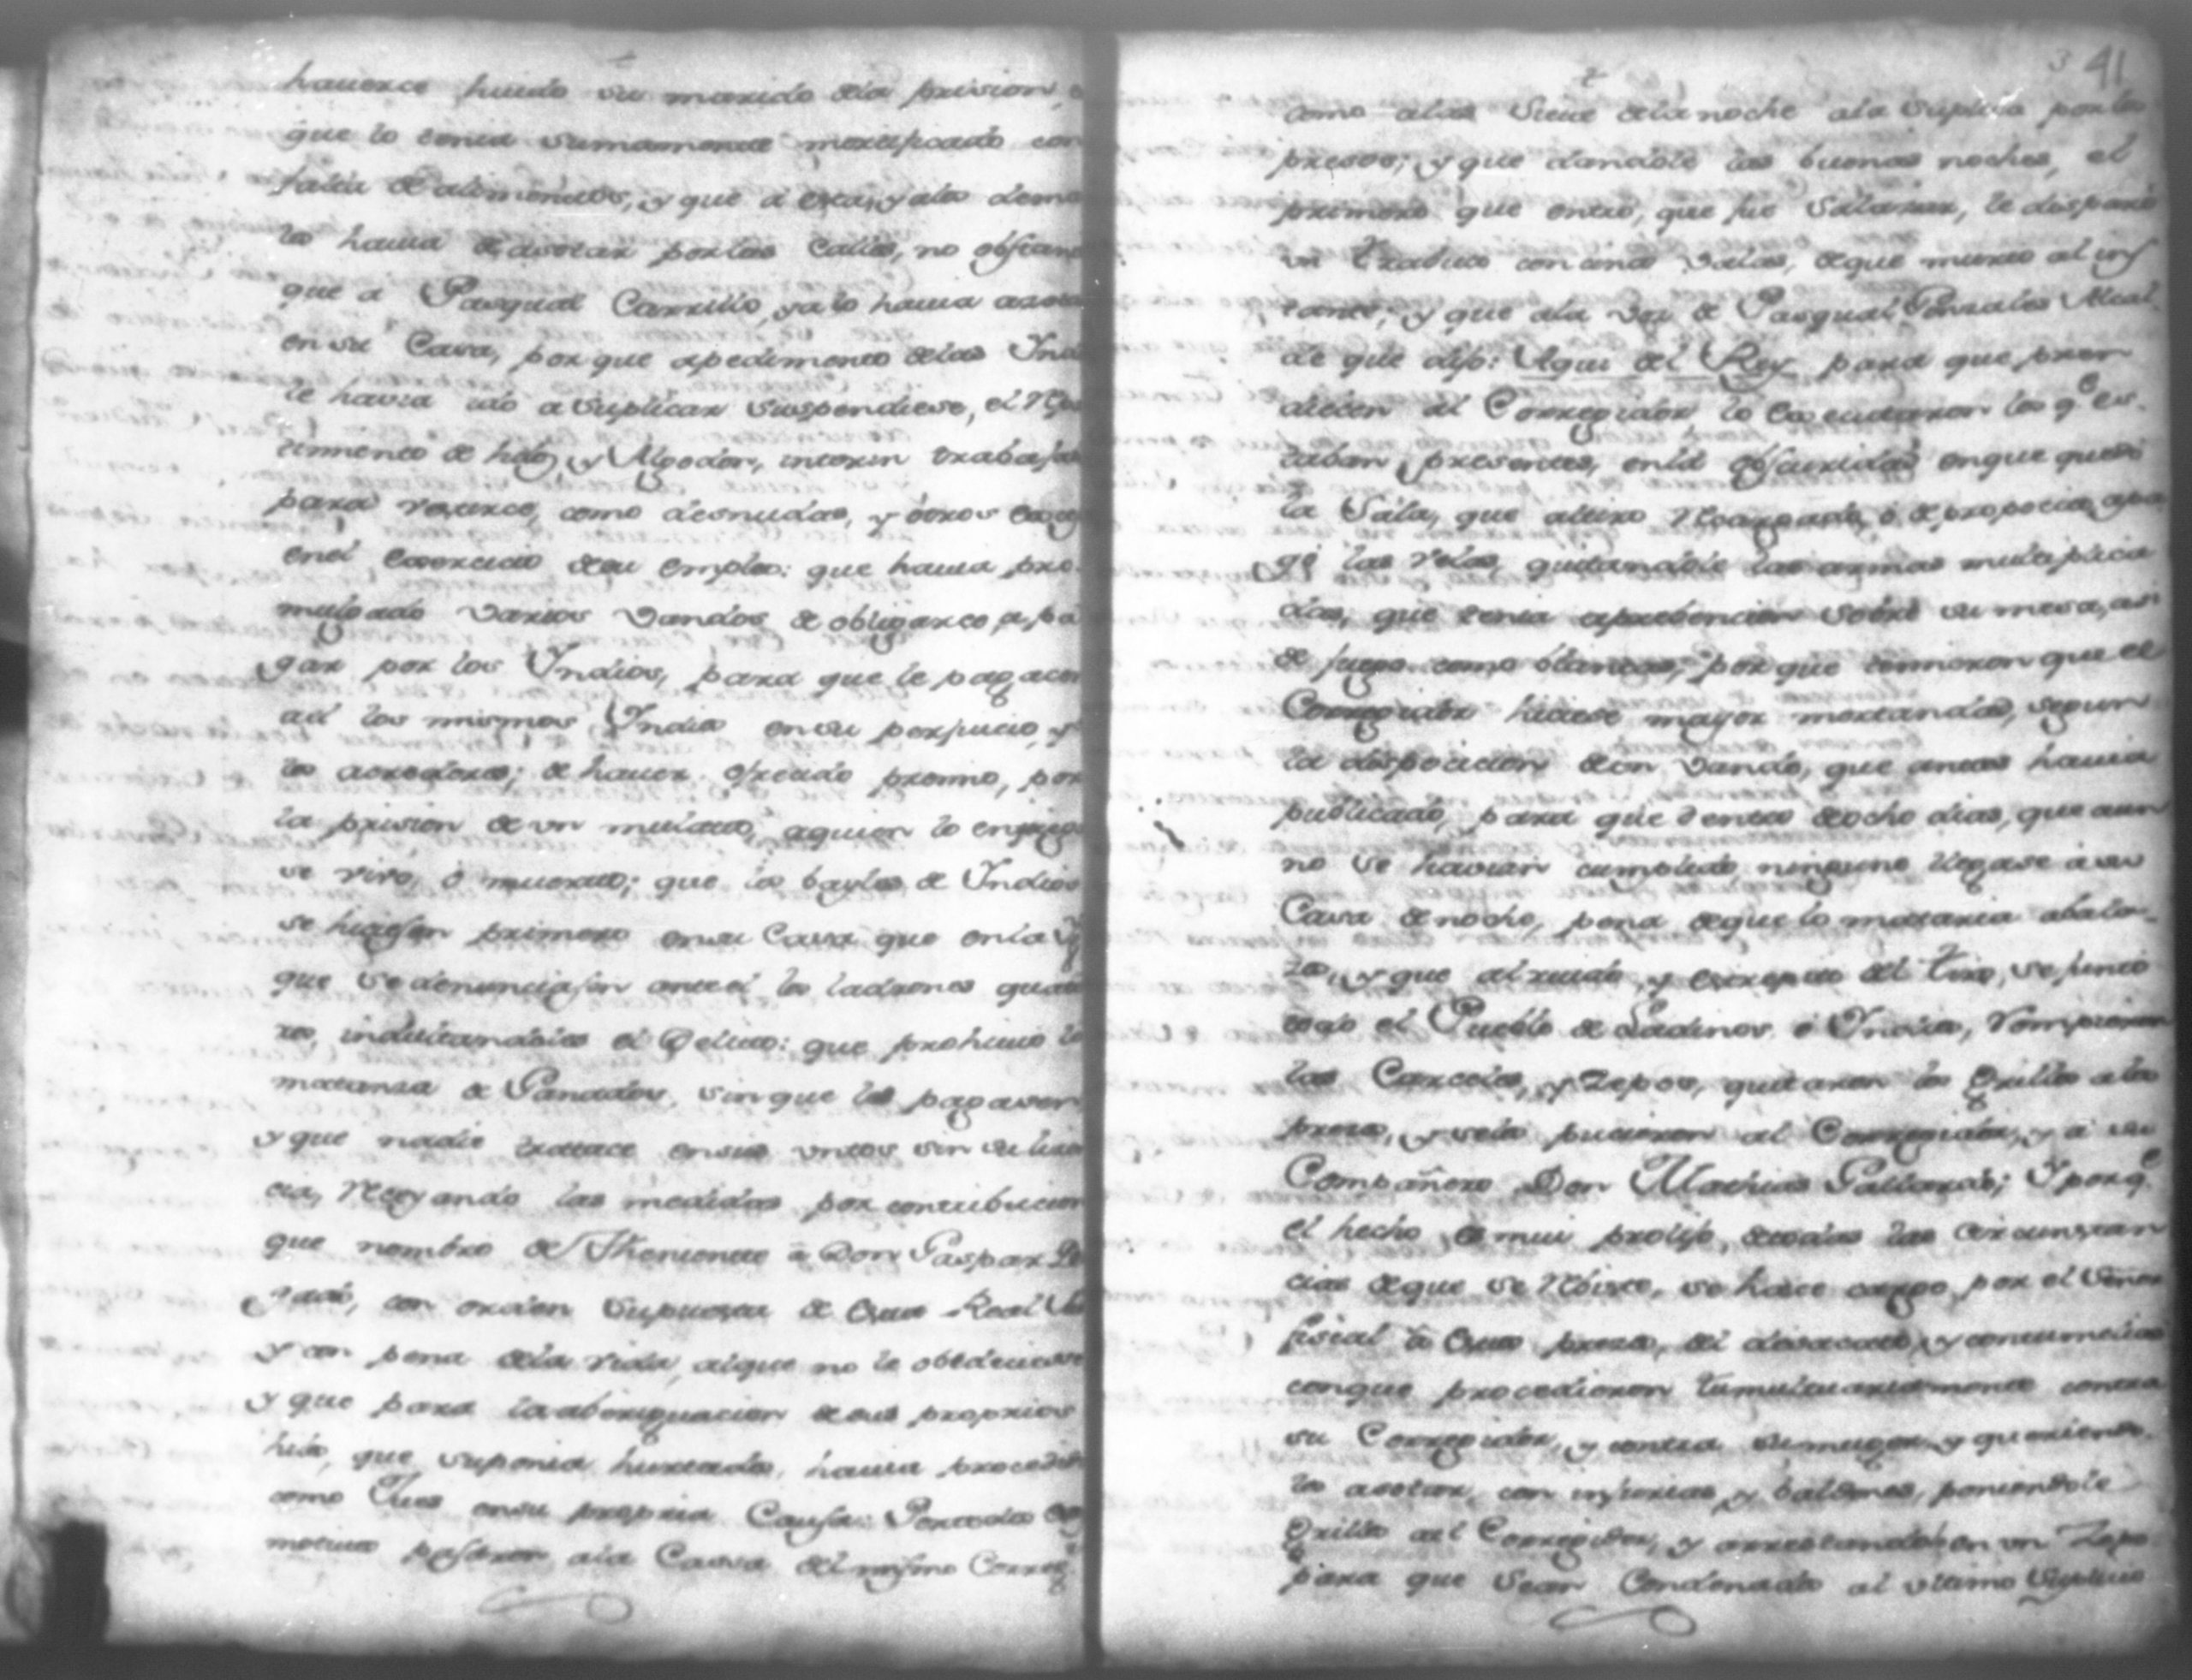 hauerce huido su marido dela prision,
que lo tenia sumamente mortificado con
falta de alimentos, y que a esta, y alas demas
las hauia de asotar por las Calles, no obstan
que a Pasqual Carrillo, ya lo hauia asota
en su Casa, por que apedimento delas Ind
le havia ido a suplicar suspendiese, el Repa
timiento de hilo, y Algodon, interin trabajaban
para vestirce, como desnudas, y otros
en el exercicio de su empleo: que hauia pro
mulgado varios vandos de obligarce, a pa
gar por los Indios, para que le pagacen
asi los mismos Indios en su perjuicio, y
los acredores; de hauer ofrecido premio, por
la prision de un mulato, aquien lo entrega
se vivo, o muerto; que los bayles de Indios
se hiziesen primero en su Casa que en la
que se denunciasen ante el los ladrones
indultandoles el Delito: que prohiuio la
matanza de Ganados, sin que le pagasen,
y que nadie tratace en sus untos sin su licen
cia, las medidas por contribucion
que nombro de Theniente a Don Gaspar
gado, con orden supuesta de esta Real
y con pena dela vida, alque no le obedeciese
y que para la aberiguacion de sus proprios
hilo, que suponia hurtado, hauia procedido
como Jues en su propria Causa: Por todos
motivos pasaron ala Cassa del mismo Correg
3 41
como alas Siete dela noche ala Suplica por los
presos; y que dandole las buenas noches, el
primero que entro, que fue Salazar, le disparo
un Trabuco con cinco valas, deque murio al ins
tante; y que ala vos de Pasqual Gonzales Alcal
de que dijo: Aqui del Rey para que pren
diecen al Corregidor, lo executaron los q.e es
taban presentes, en la obscuridad enque quedo
la Sala, que altiro o de proposito, apa
gó las velas, quitandole las armas multiplica
das, que tenia aprebencion sobre su mesa, asi
de fuego como blancas, por que temieron que el
Corregidor hiciese mayor mortandad, segun
la disposicion de un vando, que antes hauia
publicado, para que dentro de ocho dias, que aun
no se havian cumplido, ninguno llegase a su
Casa de noche, pena deque lo mataria abala
zos, y que al ruido, y extrepito del tiro, se junto
todo el Pueblo de Ladinos e Indios, Rompieron
las Carceles, y Zepos, quitaron los Grillos alos
presos, y selos pucieron al Corregidor, y a su
Compañero Don Mathias Gallardo; Y porq.e
el hecho es mui prolijo, de todas las circunstan
cias deque se Rebiste, se hace cargo por el Señor
fiscal a estos presos, del desacato, y contumelias
conque procedieron tumultuariamente contra
su Corregidor, y contra su muger, y queriendo
la asotar, con injurias, y baldones, poniendole
Grillos al Corregidor, y arrestandolo en un Zepo
para que sean Condenados al ultimo Suplicio